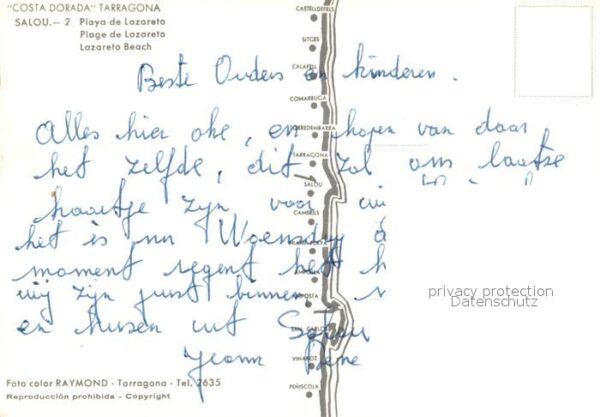 "COSTA DORADA" TARRAGONA
SALOU.- 2 Playa de Lazareto
Plage de Lazareto
Lazareto Beach
CASTELLDEFELS
SITGES
CALAFELL
COMARRUGA
TORREDEMBARRA
TARRAGONA
SALOU
CAMBRILS
VINAROZ
PEÑISCOLA
Beste Ouders en kinderen.
Alles hier oke, en hopen van daar
het zelfde, dit zal ons laatse
kaartje zijn voor
het is nu Woensdag
moment regent het
wij zijn juist binnen
en kussen uit Salou
privacy protection
Datenschutz
Foto color RAYMOND - Tarragona - Tel. 2635
Reproducción prohibida - Copyright